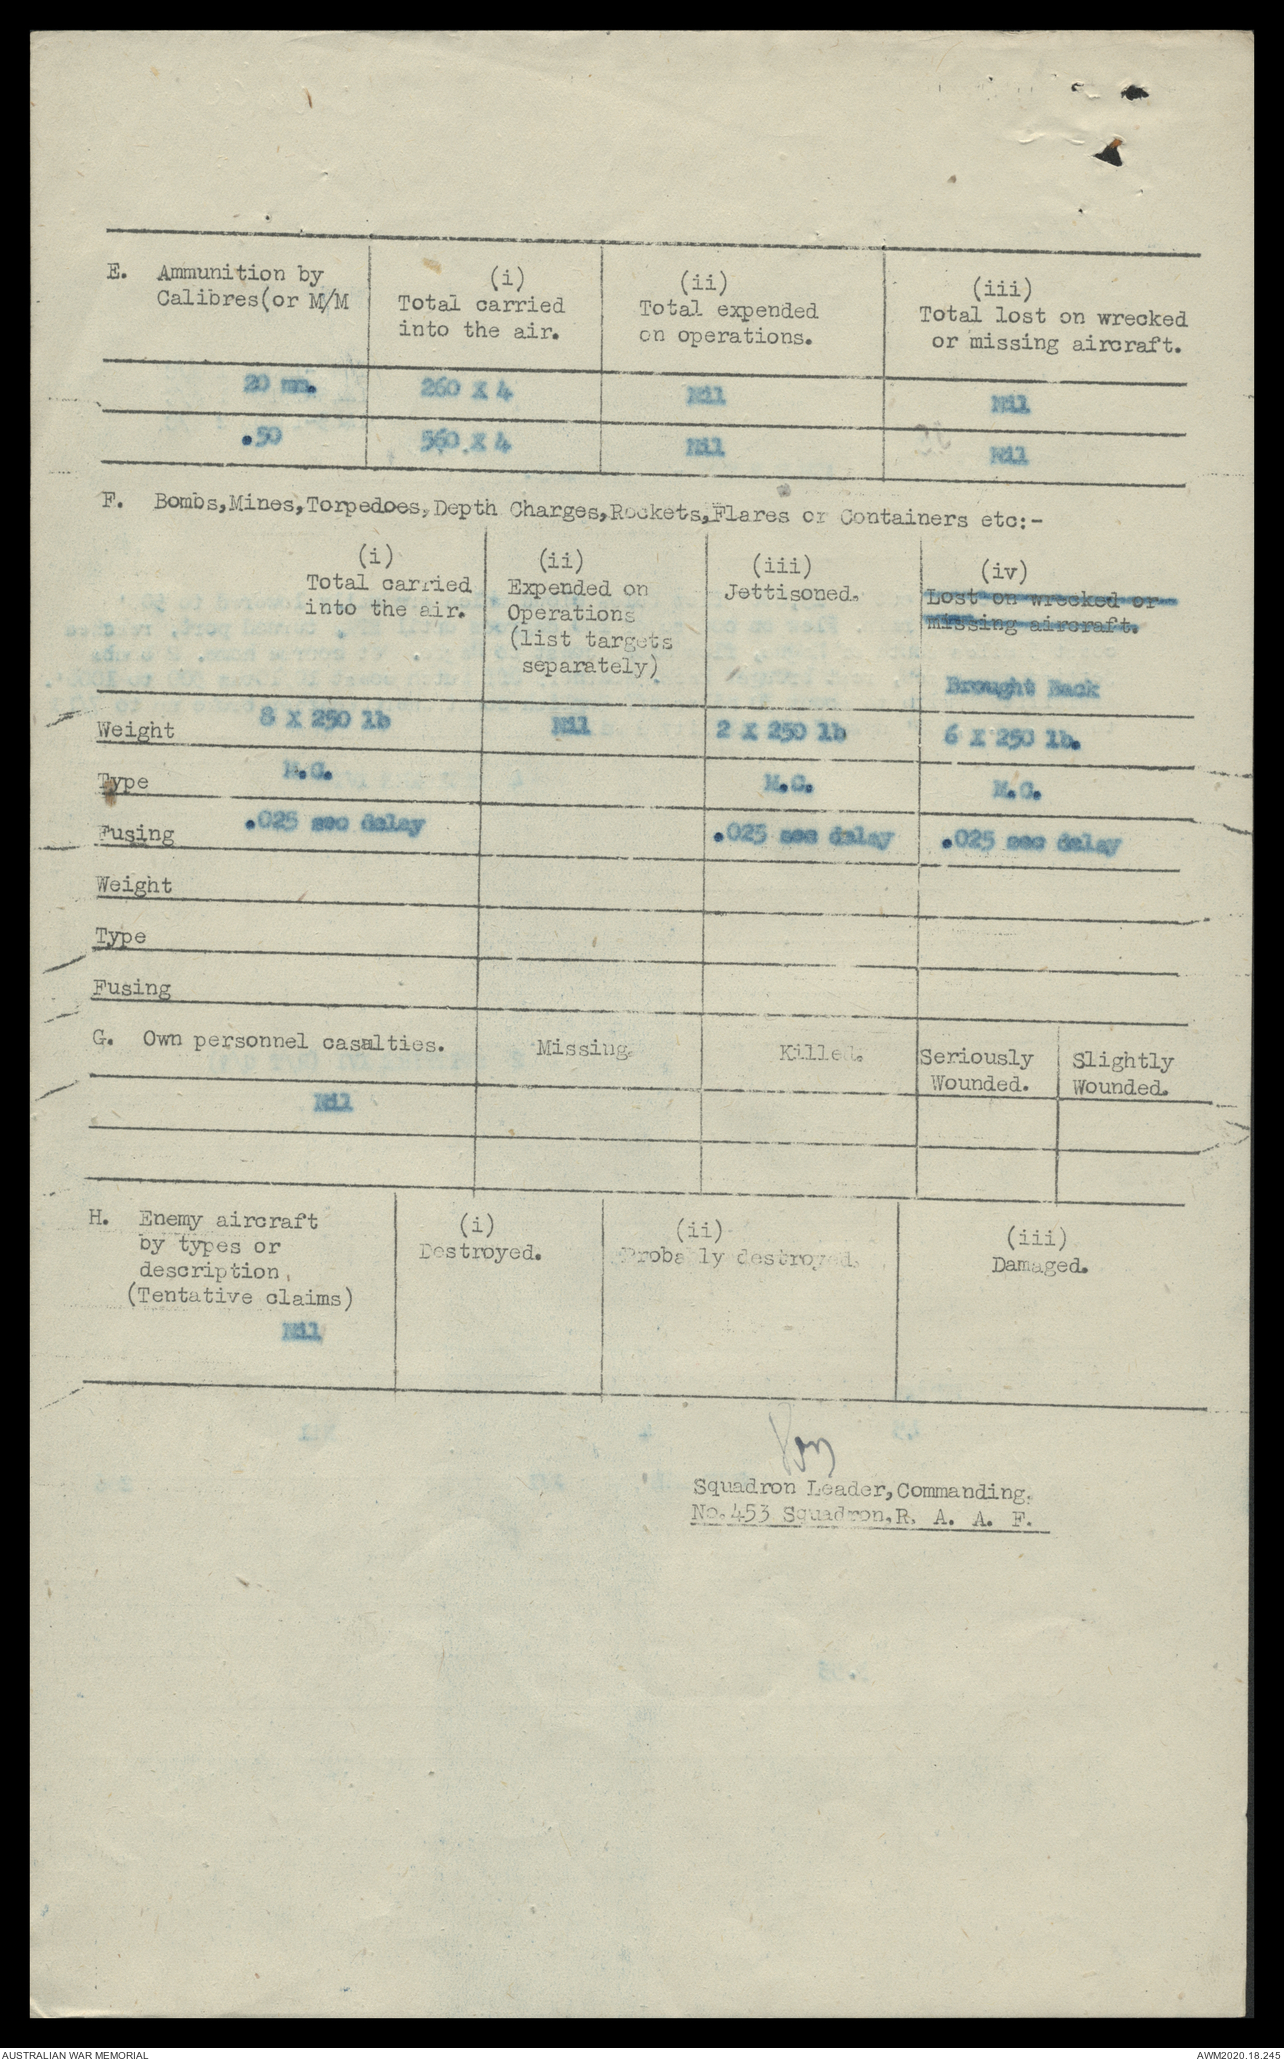 E. Ammunition by (i) (ii) (iii)
Calibres(or M/M Total carried Total expended Total lost on wrecked
into the air. on operations. or missing aircraft.
20 mm. 260 X 4 Nil Nil
.50 560 X 4 Nil Nil
F. Bombs,Mines,Torpedoes,Depth Charges,Rockets,Flares or Containers etc:-
(i) (ii) (iii) (iv)
Total carried Expended on Jettisoned. Lost on wrecked or
into the air. Operations Missing aircraft.
(list targets
separately) Brought Back
Weight 8 X 250 lb Nil 2 X 250 lb 6 X 250 lb.
Type M.C. M.C. M.C.
Fusing .025 sec delay .025 sec delay .025 sec delay
Weight
Type
Fusing
G. Own personnel casalties. Missing. Killed. Seriously Slightly
Wounded. Wounded.
Nil
H. Enemy aircraft (i) (ii) (iii)
by types or Destroyed. Probably destroyed. Damaged.
description,
(Tentative claims)
Nil
Squadron Leader,Commanding.
No.453 Squadron,R. A. A. F.
AUSTRALIAN WAR MEMORIAL AWM2020.18.245